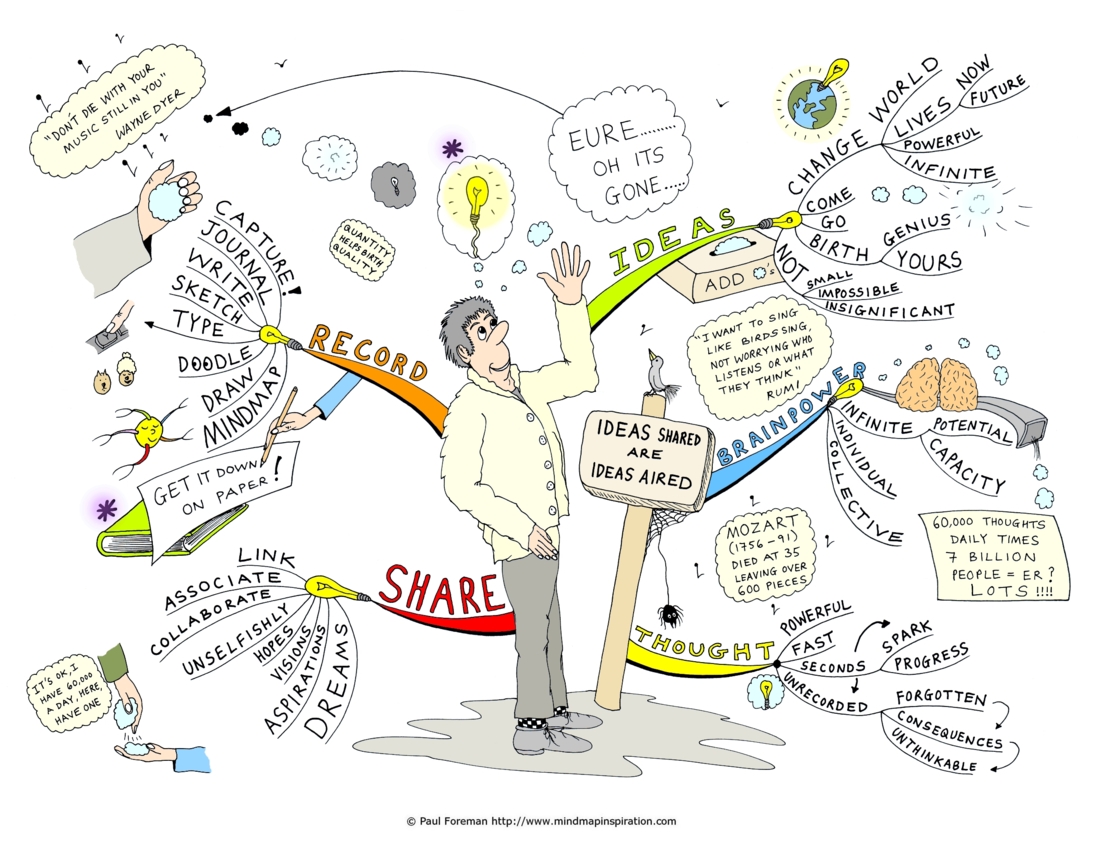 "DON'T DIE WITH YOUR
MUSIC STILL IN YOU"
WAYNE DYER
EURE.........
OH ITS
GONE.....
QUANTITY
HELPS BIRTH
QUALITY
IDEAS
CHANGE WORLD
LIVES
NOW
FUTURE
POWERFUL
INFINITE
COME
GO
BIRTH
GENIUS
YOURS
NOT
SMALL
IMPOSSIBLE
INSIGNIFICANT
ADD 's
RECORD
CAPTURE!
JOURNAL
WRITE
SKETCH
TYPE
DOODLE
DRAW
MINDMAP
GET IT DOWN
ON PAPER!
"I WANT TO SING
LIKE BIRDS SING,
NOT WORRYING WHO
LISTENS OR WHAT
THEY THINK"
RUMI
IDEAS SHARED
ARE
IDEAS AIRED
BRAINPOWER
INFINITE
POTENTIAL
CAPACITY
INDIVIDUAL
COLLECTIVE
60,000 THOUGHTS
DAILY TIMES
7 BILLION
PEOPLE = ER?
LOTS !!!!
MOZART
(1756-91)
DIED AT 35
LEAVING OVER
600 PIECES
SHARE
LINK
ASSOCIATE
COLLABORATE
UNSELFISHLY
HOPES
VISIONS
ASPIRATIONS
DREAMS
IT'S OK, I
HAVE 60,000
A DAY, HERE,
HAVE ONE
THOUGHT
POWERFUL
FAST
SECONDS
SPARK
PROGRESS
UNRECORDED
FORGOTTEN
CONSEQUENCES
UNTHINKABLE
© Paul Foreman http://www.mindmapinspiration.com